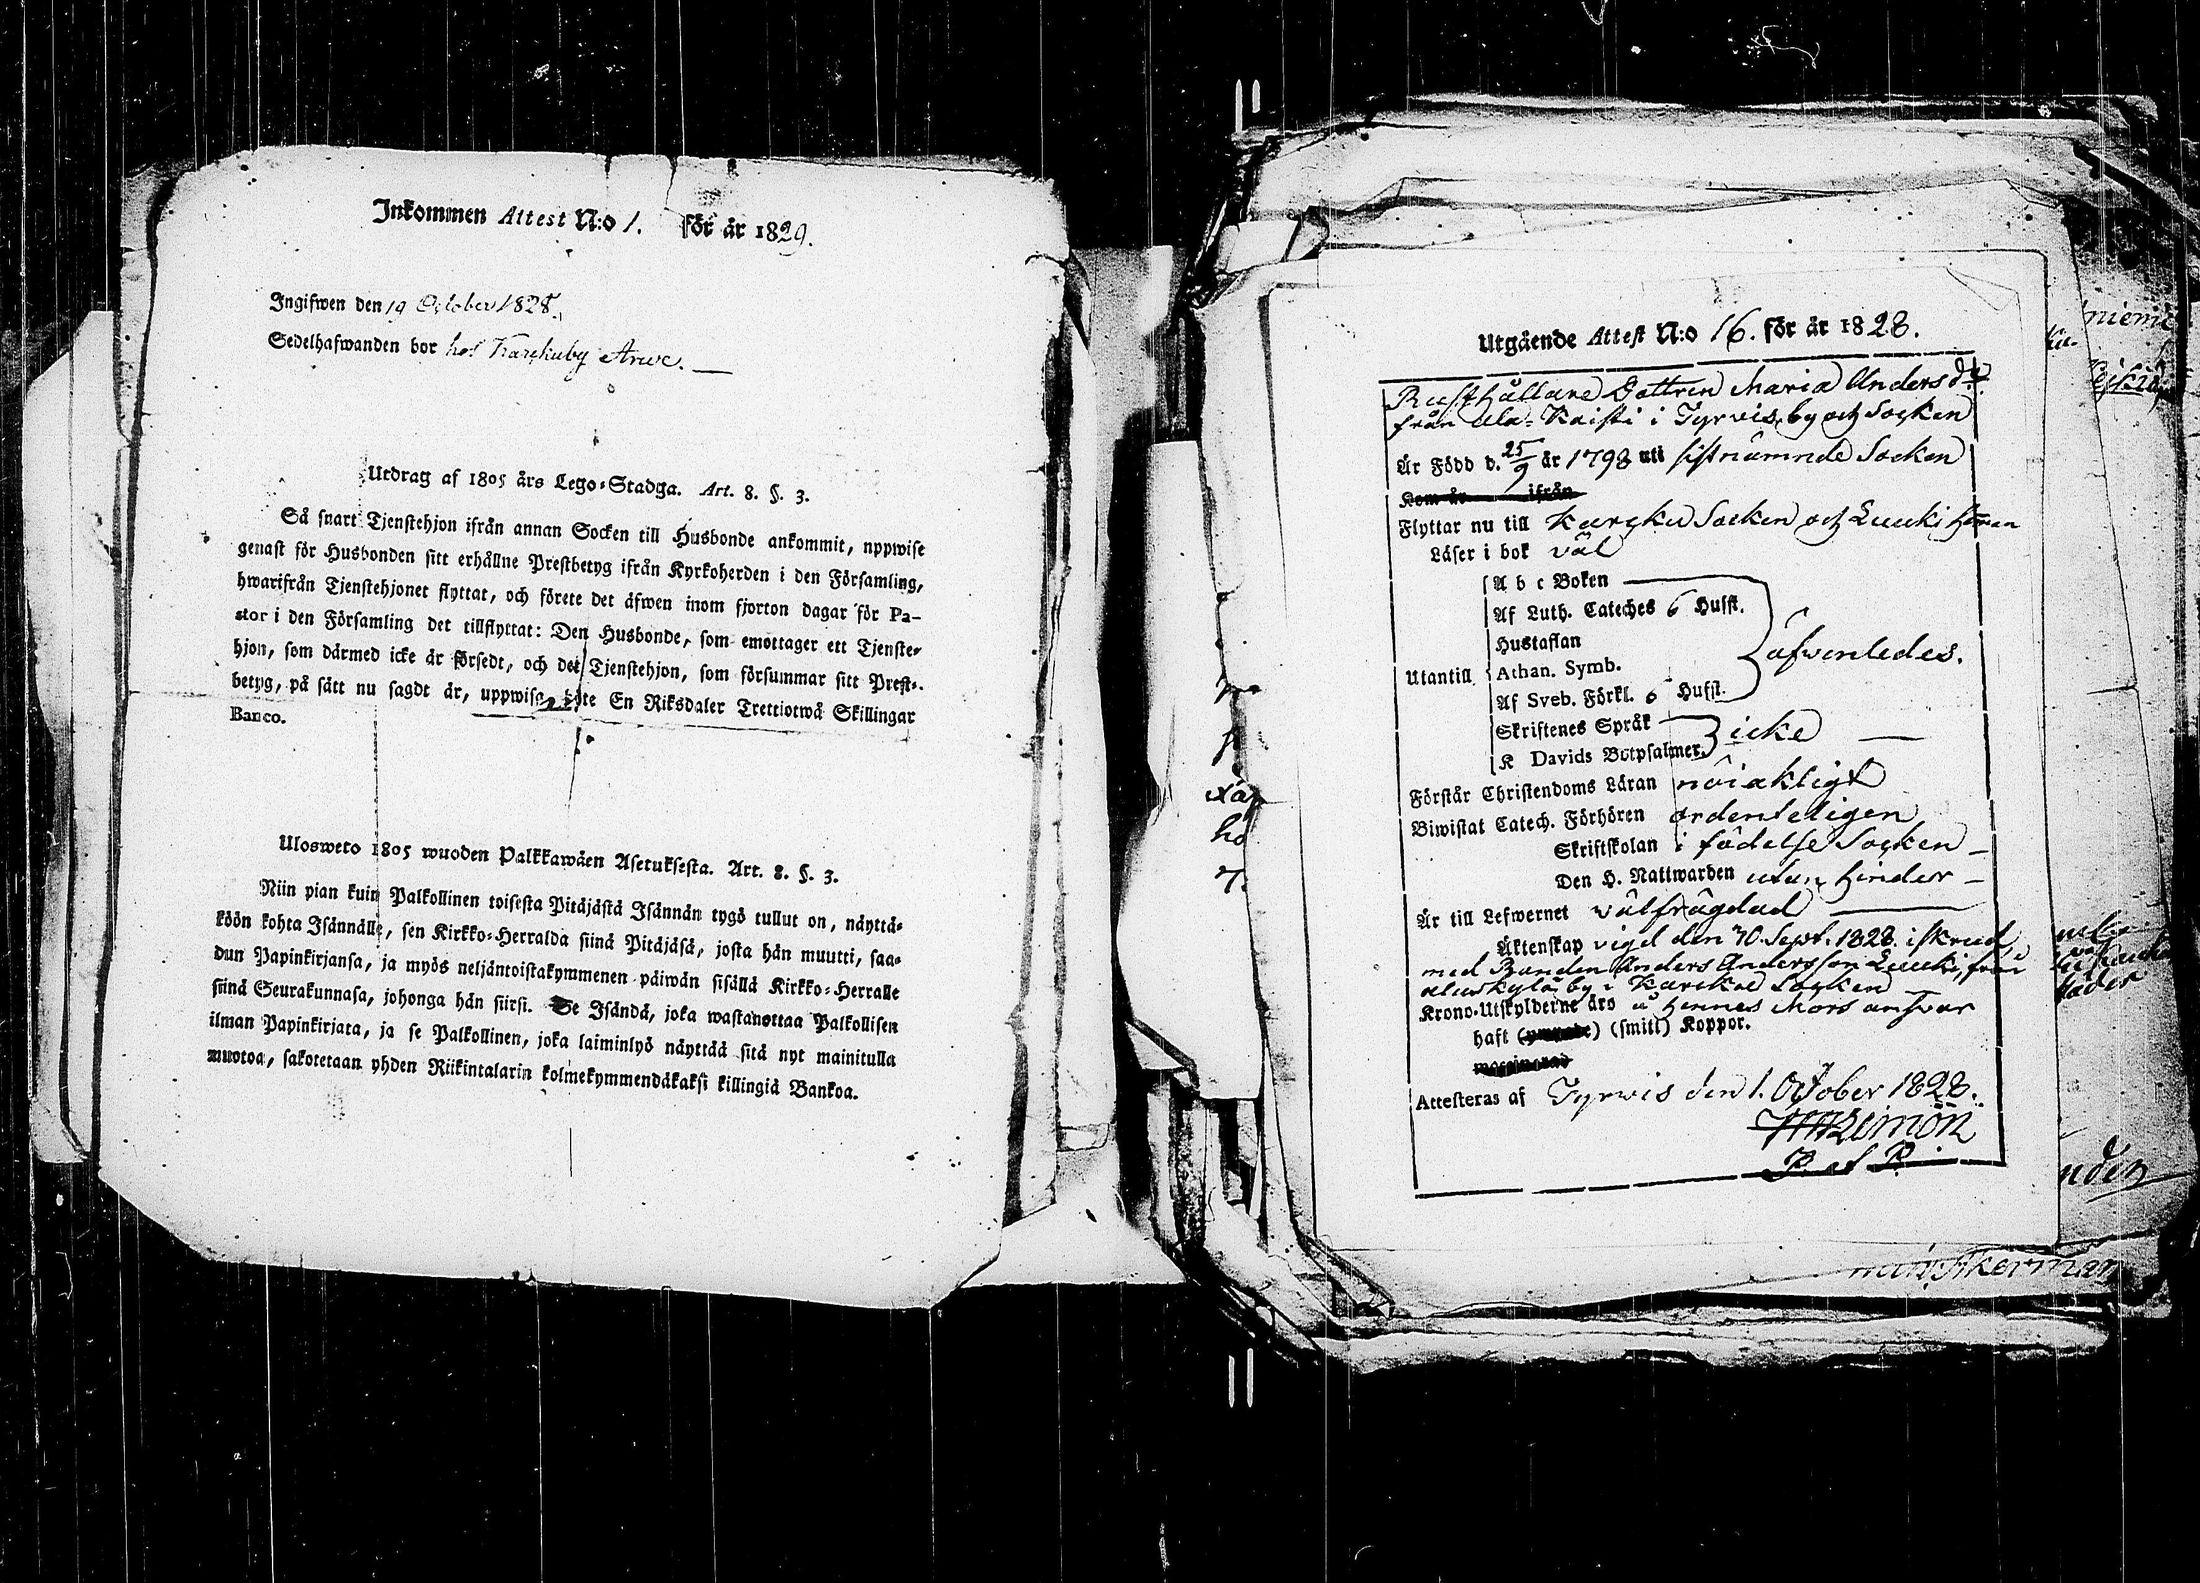 Inkommen Attest N:o 1. för år 1829.
Ingifwen den 19 October 1828.
Sedelhafwanden bor hos Karckuby Arwe.
Utdrag af 1805 års Lego-Stadga. Art. 8. §. 3.
Så snart Tjenstehjon ifrån annan Socken till Husbonde ankommit, uppwise
genast för Husbonden sitt erhållne Prestbetyg ifrån Kyrkoherden i den Församling,
hwarifrån Tjenstehjonet flyttat, och förete det äfwen inom fjorton dagar för Pa-
stor i den Församling det tillflyttat: Den Husbonde, som emottager ett Tjenste-
hjon, som därmed icke är försedt, och det Tjenstehjon, som försummar sitt Prest-
betyg, på sätt nu sagdt är, uppwisa, böte En Riksdaler Trettiotwå Skillingar
Banco.
Ulosweto 1805 wuoden Palkkawäen Asetuksesta. Art. 8. §. 3.
Niin pian kuin Palkollinen toisesta Pitäjästä Isännän tygö tullut on, näyttä-
köön kohta Isännälle, sen Kirkko-Herralda siinä Pitäjäsä, josta hän muutti, saa-
dun Papinkirjansa, ja myös neljäntoistakymmenen päiwän sisällä Kirkko-Herralle
siinä Seurakunnasa, johonga hän siirsi. Se Isändä, joka wastanottaa Palkollisen
ilman Papinkirjata, ja se Palkollinen, joka laiminlyö näyttää sitä nyt mainitulla
muotoa, sakotetaan yhden Riikintalarin kolmekymmendäkaksi killingiä Bankoa.
Utgående Attest N:o 16. för år 1828.
Rusthållare Dottren Maria Andersdr
från Ala-Kaisti i Tyrvis by och Socken
Är Född d. 25/9 år 1798 uti sistnämnde Socken
Kom år ifrån
Flyttar nu till Karcku Socken och Luuki Heman
Läser i bok väl
A b c Boken
Af Luth. Cateches 6 Husst.
Hustaflan
Utantill Athan. Symb. äfwenledes.
Af Sveb. Förkl. 6 Husst.
Skriftenes Språk
K Davids Botpsalmer icke
Förstår Christendoms Läran nöiaktigt
Biwistat Catech. Förhören ordenteligen
Skriftskolan i födelse Socken
Den H. Nattwarden utan hinder
Är till Lefwernet wälfrägdad
Äktenskap vigd den 30. Sept. 1828. i skrud
med Bonden Anders Andersson Luuki från
by i Karcku Socken
Krono-Utskylderne års å hennes Mors answar
haft (smitt) Koppor.
Attesteras af Tyrwis den 1. October 1828.
P. et P.